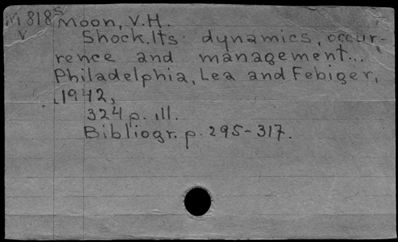 M818s Moon, V.H.
v Shock. Its dynamics, occur-
rence and management...
Philadelphia, Lea and Febiger,
1942,
324 p. ill.
Bibliogr. p. 295-317.